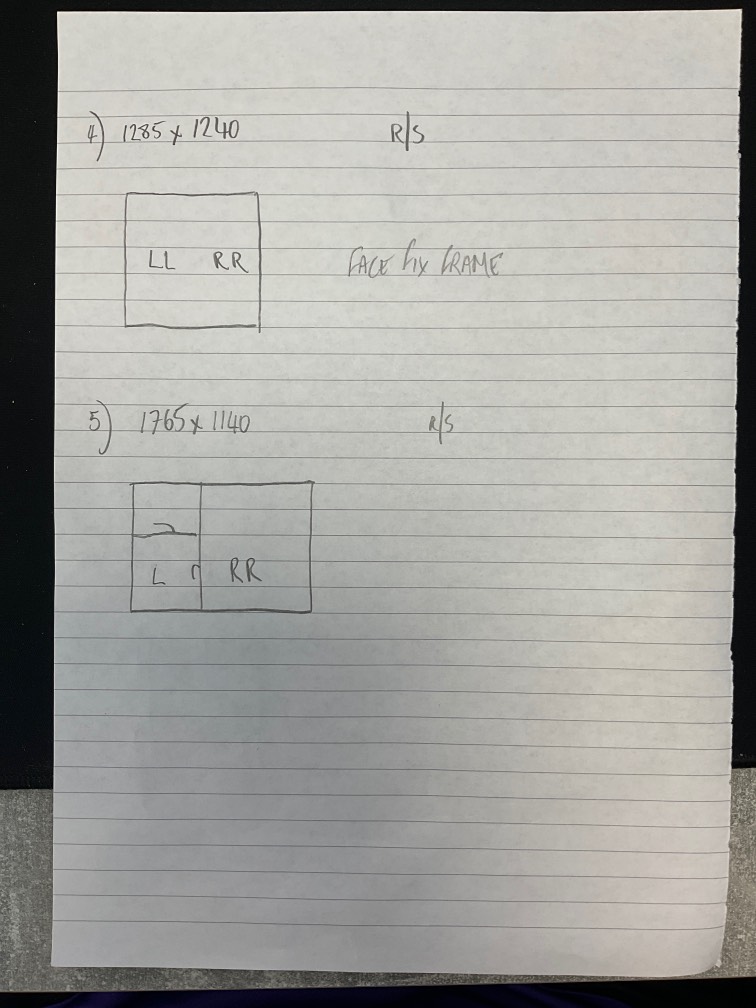 4) 1285 x 1240 R/S
LL RR FACE FIX FRAME
5) 1765 x 1140 R/S
L RR